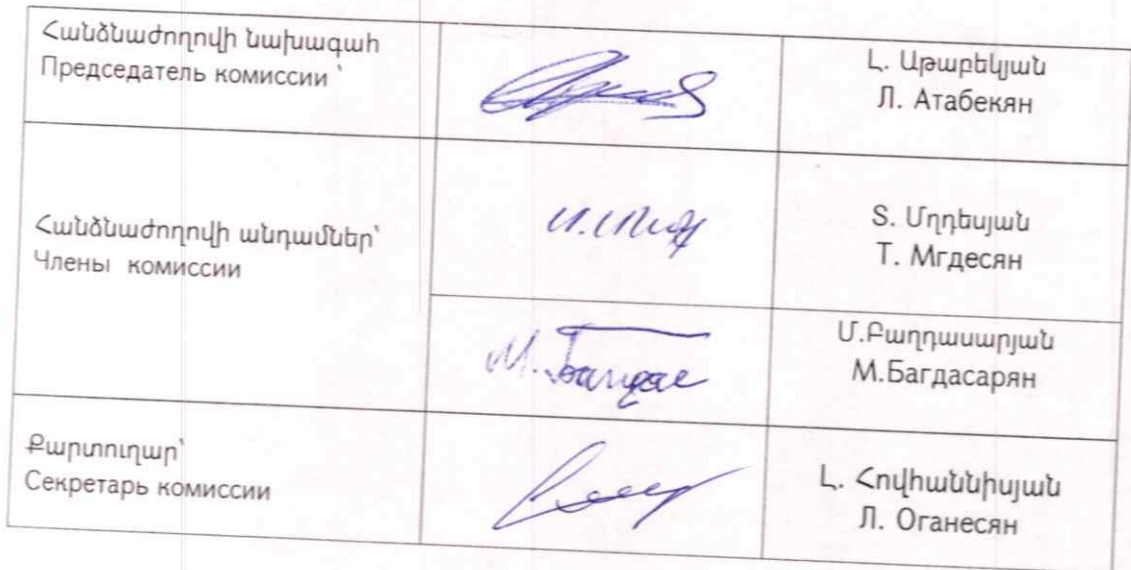 Հանձնաժողովի նախագահ
Председатель комиссии ՝
Լ. Աթաբեկյան
Л. Атабекян
Հանձնաժողովի անդամներ՝
Члены комиссии
Տ. Մղդեսյան
Т. Мгдесян
М.
Մ.Բաղդասարյան
М.Багдасарян
Քարտուղար՝
Секретарь комиссии
Լ. Հովհաննիսյան
Л. Оганесян